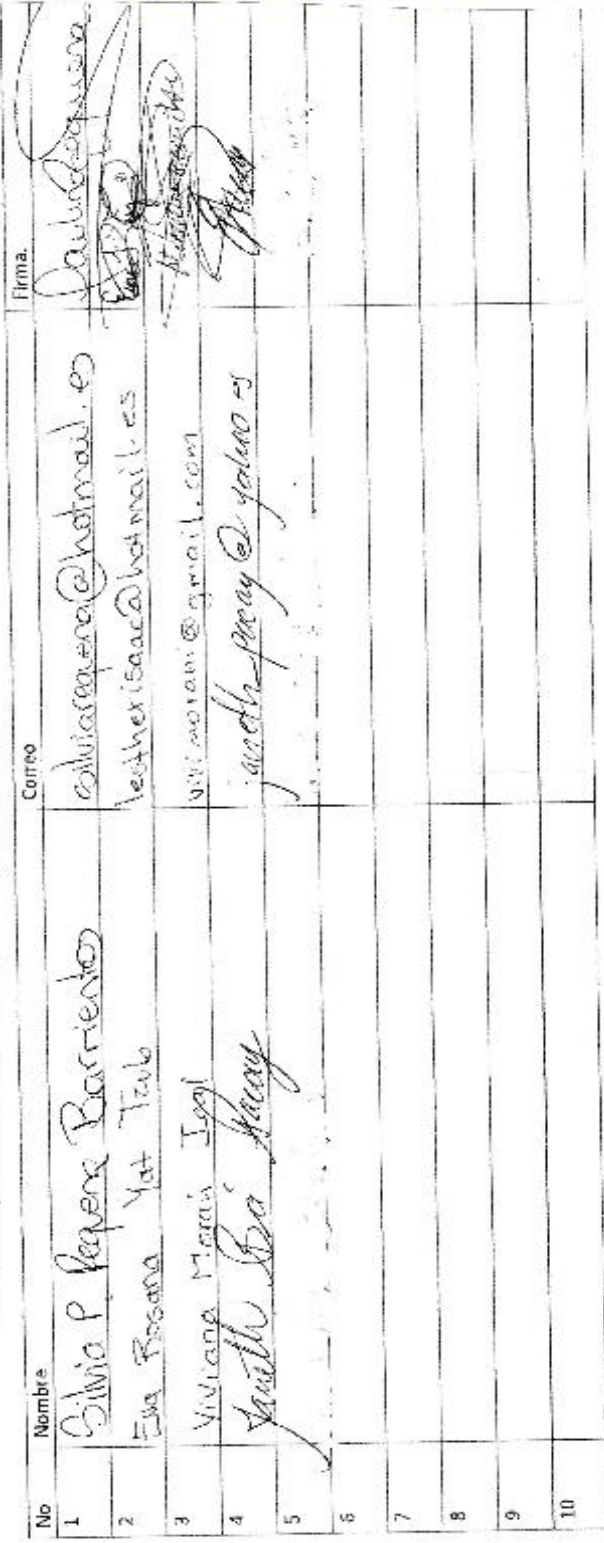 No Nombre Correo Firma.
1 Silvia P. Requena Barrientos silviarequena@hotmail.es
2 Elda Rosana Yat Tzub lestherisaac@hotmail.es
3 Viviana Morán vivimorani@gmail.com
4 Janeth Bá Pacay janeth_pacay@yahoo es
5
6
7
8
9
10